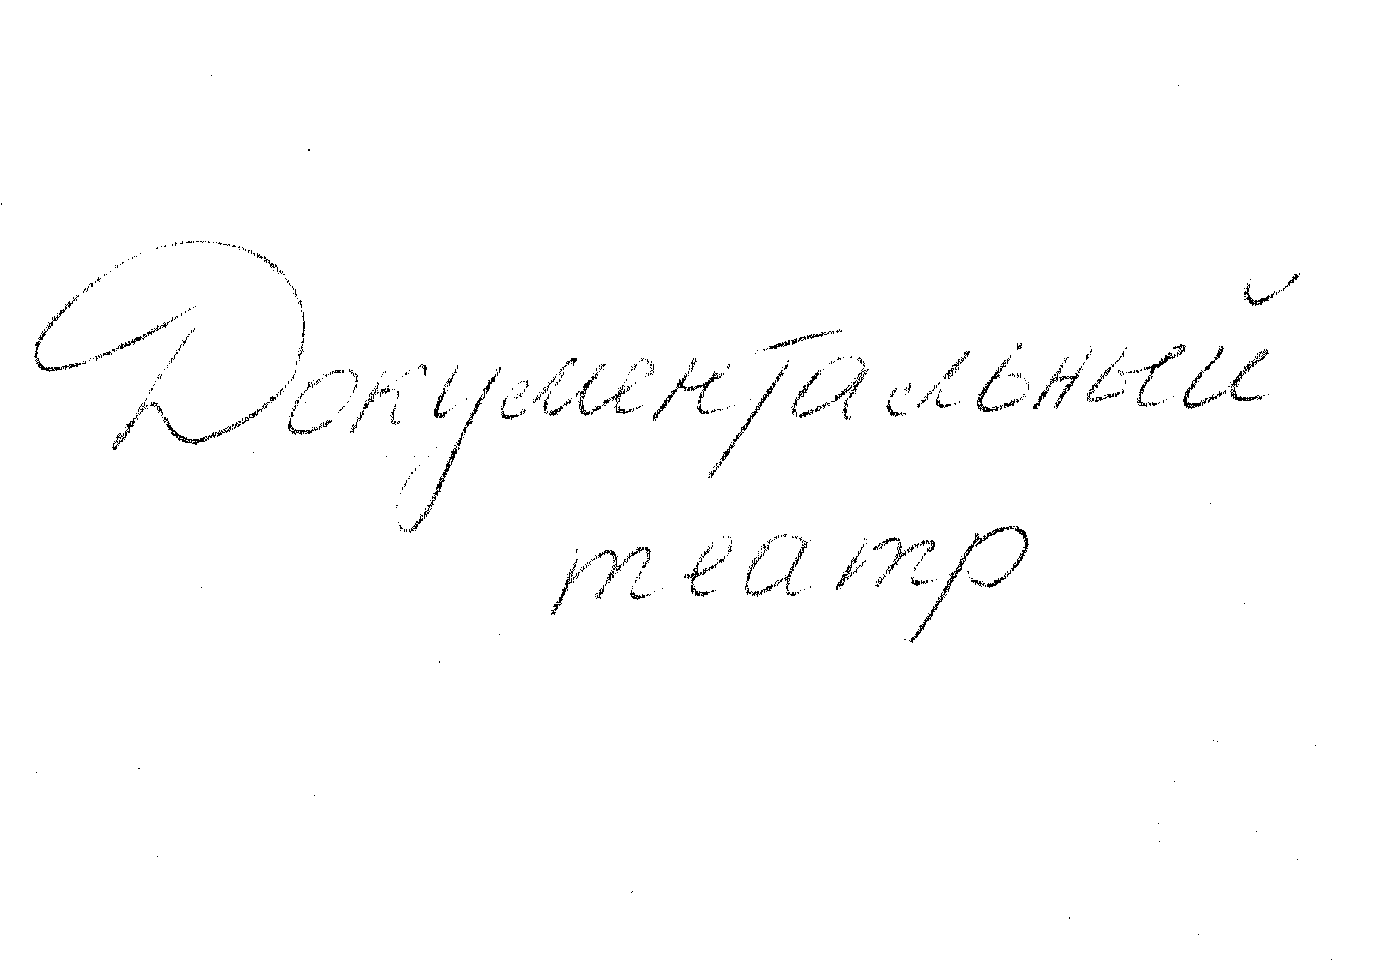 Документальный
театр